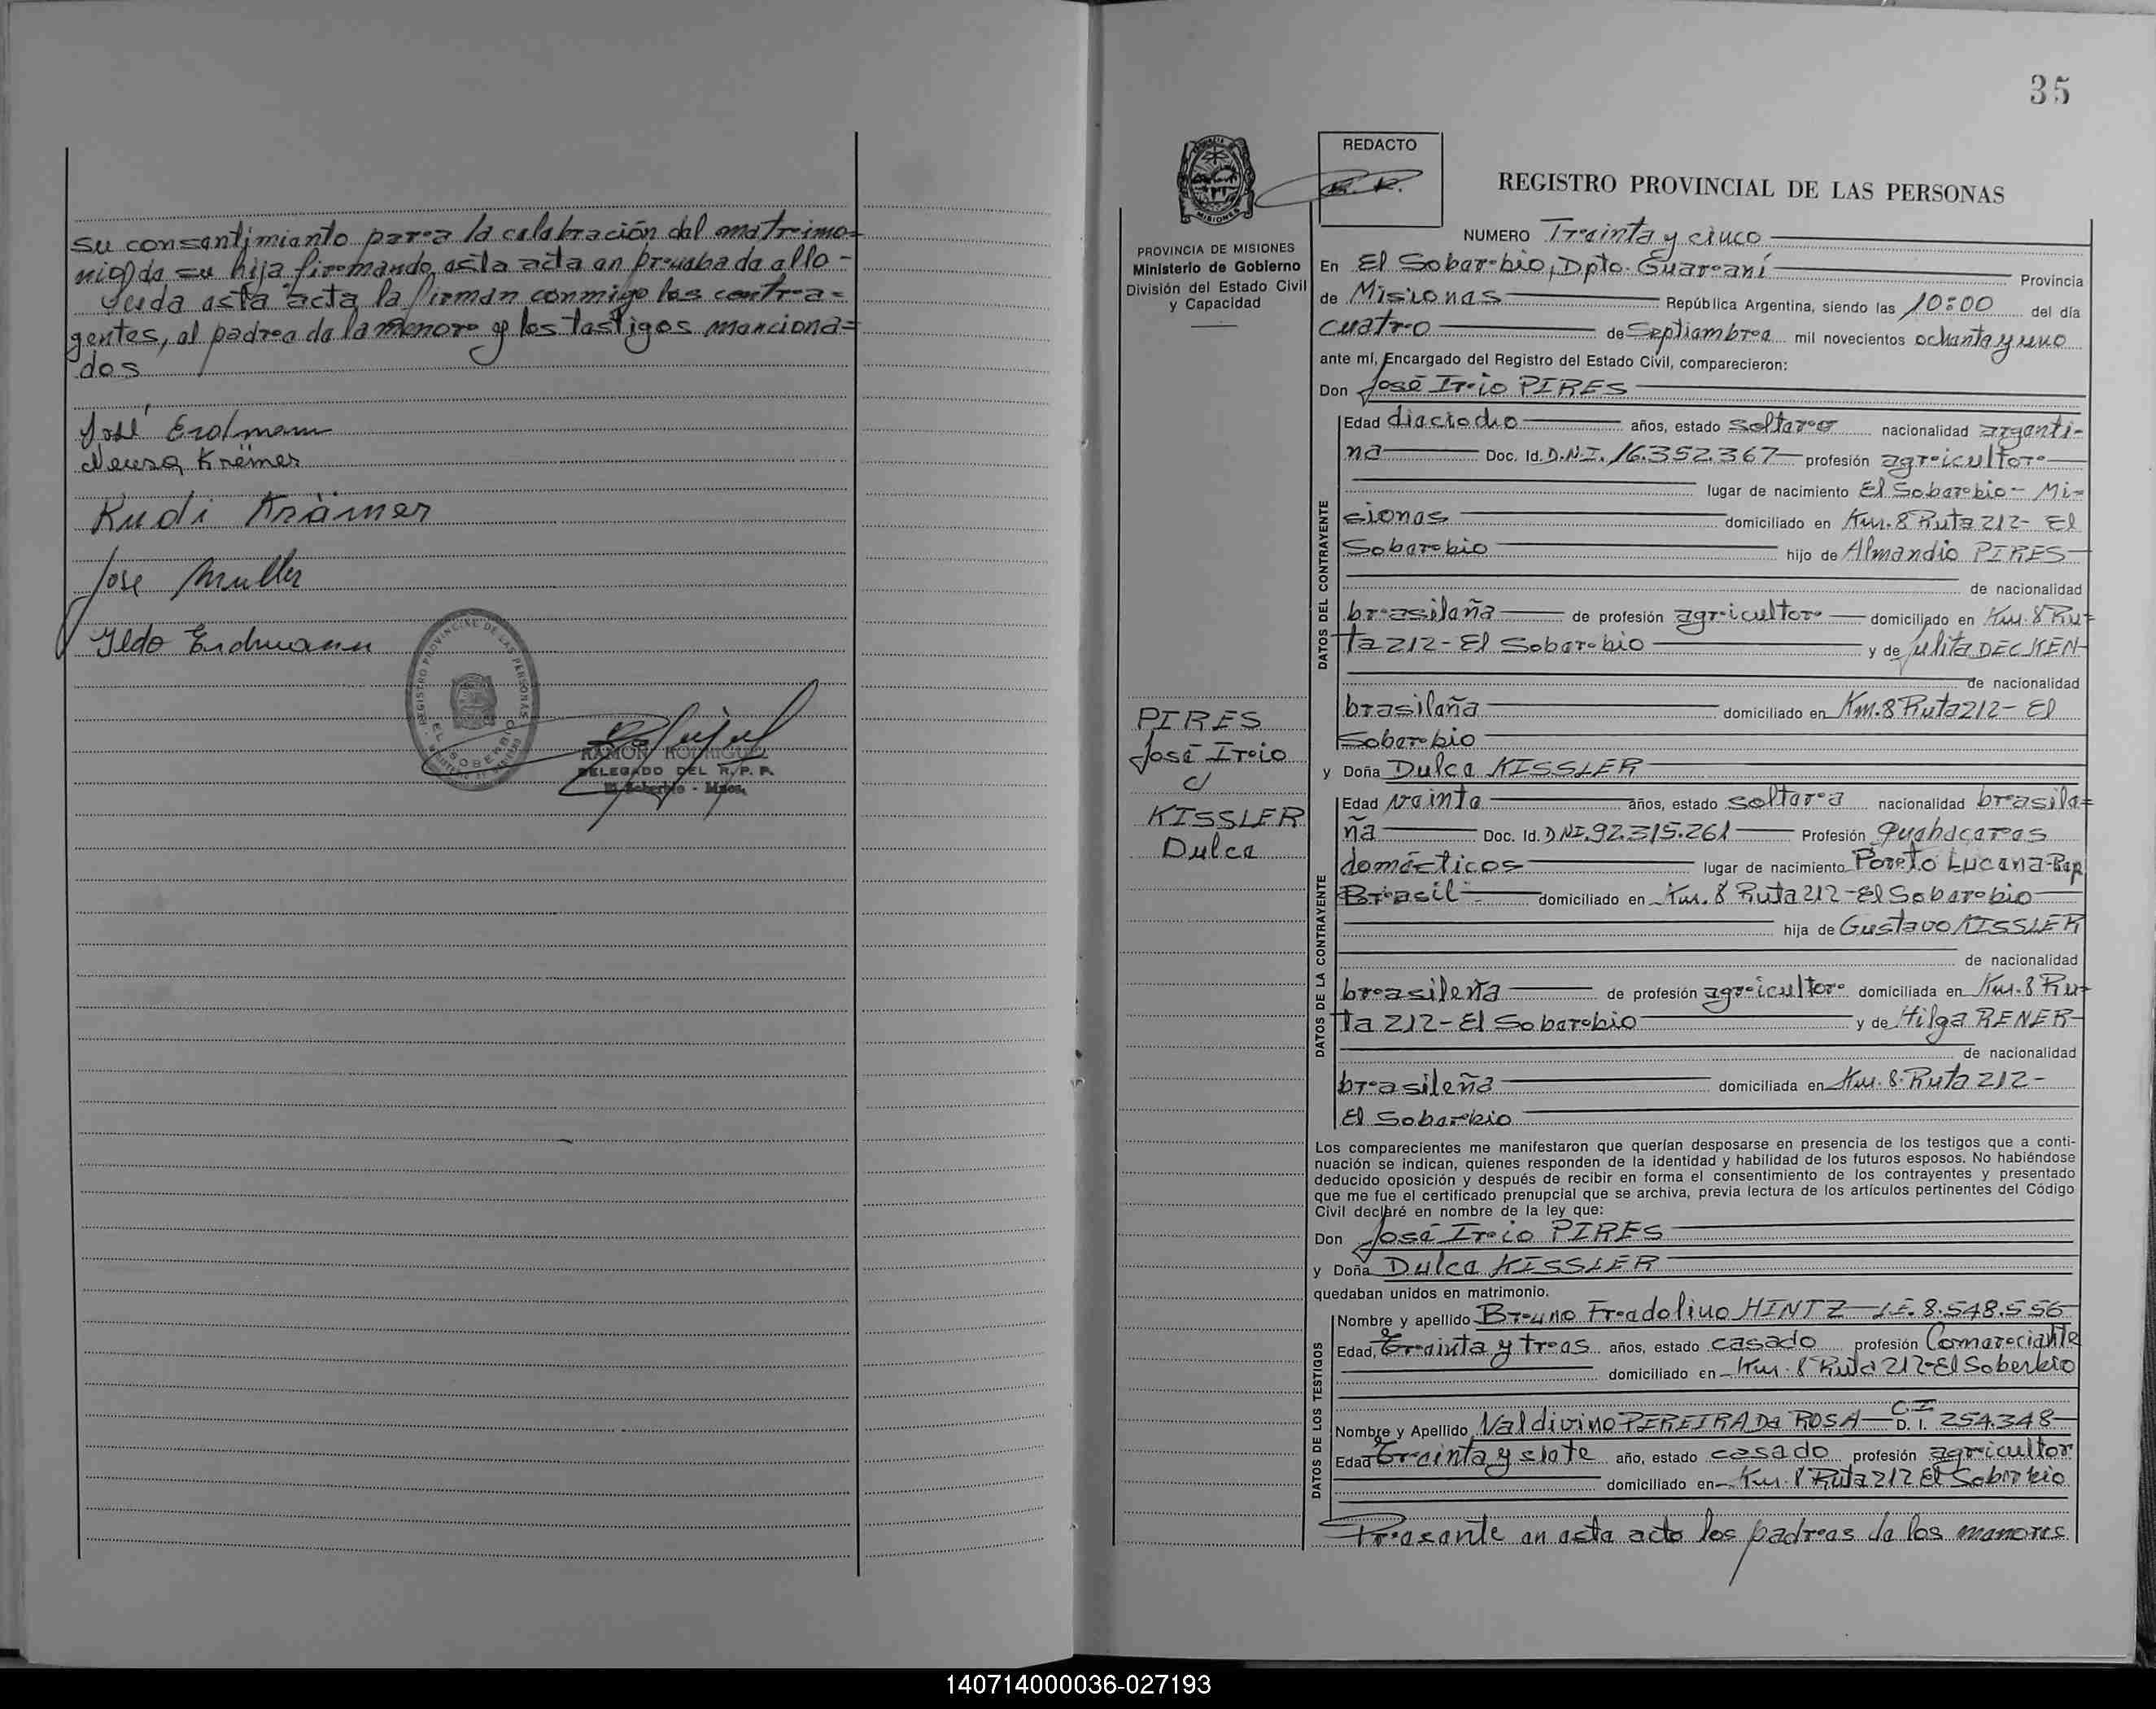 su consentimiento para la celebración del matrimo=
nio de su hija firmando esta acta en prueba de ello -
Leida esta acta la firman conmigo los contra=
gentes, el padre de la menor y los testigos menciona=
dos
José Erdmann
Neusa Krämer
Rudi Krämer
Jose Muller
Ildo Erdmann
REGISTRO PROVINCIAL DE LAS PERSONAS
EL SOBERBIO
RAMON RODRIGUEZ
DELEGADO DEL R. P. P.
El Soberbio - Mnes.
35
PROVINCIA DE MISIONES
Ministerio de Gobierno
División del Estado Civil
y Capacidad
MISIONES
REDACTO
R. R.
REGISTRO PROVINCIAL DE LAS PERSONAS
NUMERO Treinta y cinco
En El Soberbio, Dpto. Guaraní Provincia
de Misiones República Argentina, siendo las 10:00 del día
cuatro de Septiembre mil novecientos ochenta y uno
ante mí, Encargado del Registro del Estado Civil, comparecieron:
Don José Irio PIRES
DATOS DEL CONTRAYENTE
Edad dieciocho años, estado soltero nacionalidad argenti-
na Doc. Id. D.N.I. 16.352.367 profesión agricultor
lugar de nacimiento El Soberbio - Mi=
siones domiciliado en Km. 8 Ruta 212 - El
Soberbio hijo de Almandio PIRES
de nacionalidad
brasileña de profesión agricultor domiciliado en Km. 8 Ru=
ta 212 - El Soberbio y de Julita DECKEN
de nacionalidad
brasileña domiciliado en Km. 8 Ruta 212 - El
Soberbio
PIRES
José Irio
c/
KISSLER
Dulce
y Doña Dulce KISSLER
DATOS DE LA CONTRAYENTE
Edad veinte años, estado soltera nacionalidad brasile=
ña Doc. Id. D.N.I. 92.315.261 Profesión Quehaceres
domésticos lugar de nacimiento Porto Lucena-Rep
Brasil domiciliado en Km. 8 Ruta 212 - El Soberbio
hija de Gustavo KISSLER
de nacionalidad
brasileña de profesión agricultor domiciliada en Km. 8 Ru=
ta 212 - El Soberbio y de Hilga RENER
de nacionalidad
brasileña domiciliada en Km. 8. Ruta 212 -
El Soberbio
Los comparecientes me manifestaron que querían desposarse en presencia de los testigos que a conti-
nuación se indican, quienes responden de la identidad y habilidad de los futuros esposos. No habiéndose
deducido oposición y después de recibir en forma el consentimiento de los contrayentes y presentado
que me fue el certificado prenupcial que se archiva, previa lectura de los artículos pertinentes del Código
Civil declaré en nombre de la ley que:
Don José Irio PIRES
y Doña Dulce KISSLER
quedaban unidos en matrimonio.
DATOS DE LOS TESTIGOS
Nombre y apellido Bruno Fredolino HINTZ L.E. 8.548.556
Edad, treinta y tres años, estado casado profesión Comerciante
domiciliado en Km. 8 Ruta 212-El Soberbio
Nombre y Apellido Valdivino PEREIRA Da ROSA C.I. D. I. 254.348
Edad treinta y siete año, estado casado profesión agricultor
domiciliado en Km. 8 Ruta 212 El Soberbio
Presente en este acto los padres de los menores
140714000036-027193